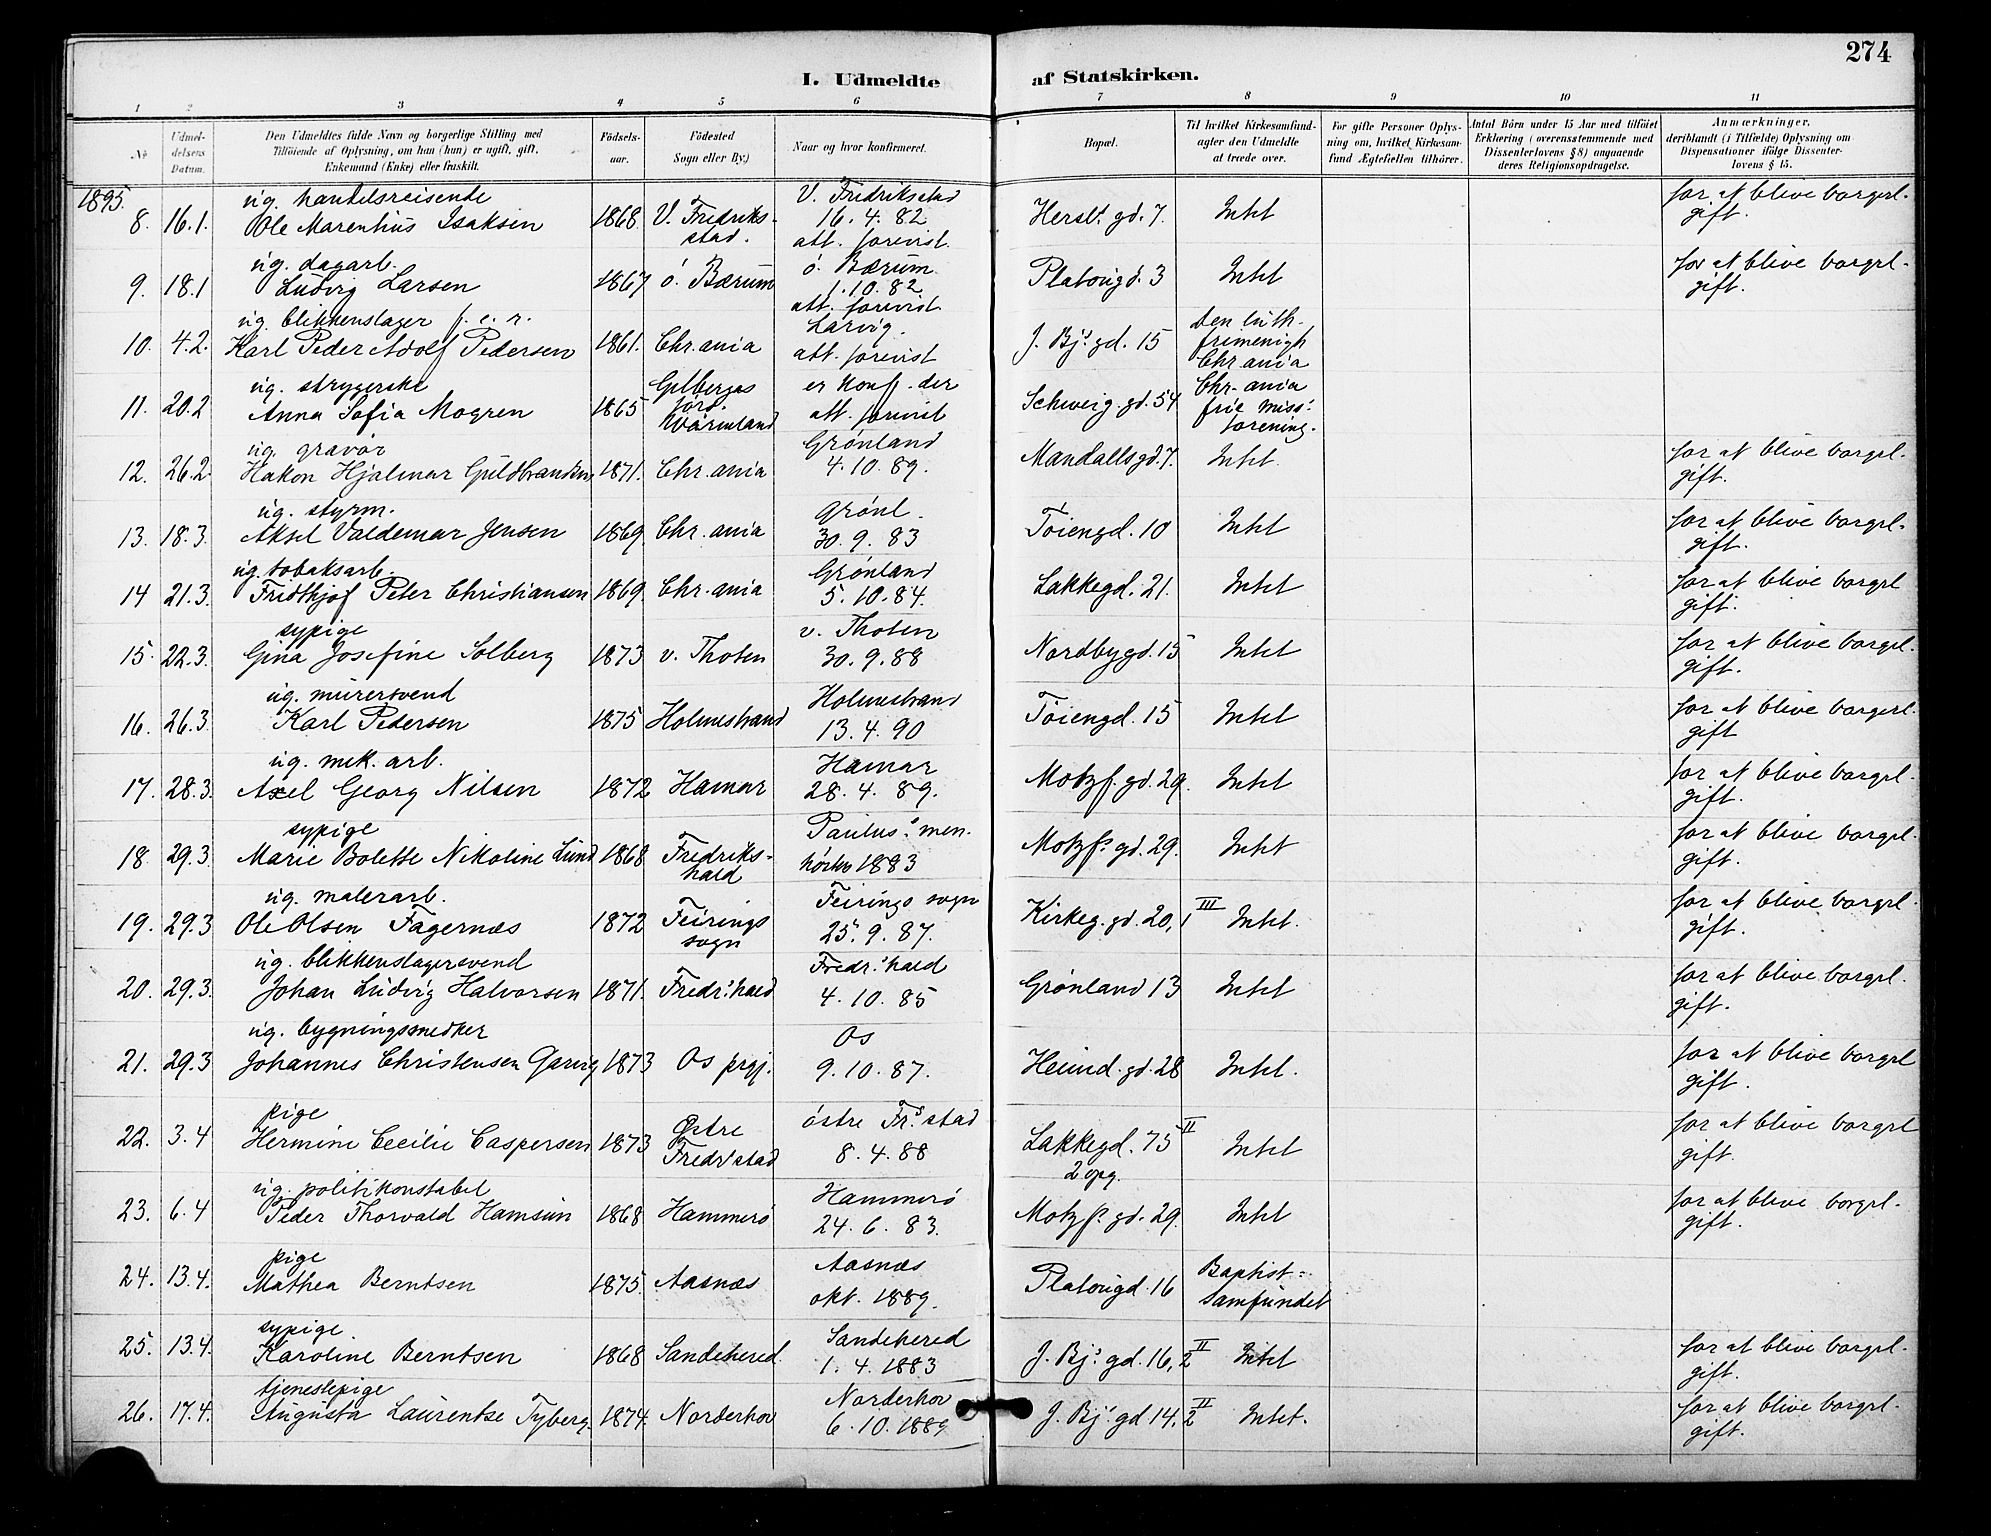 274
I. Udmeldte af Statskirken.
1 2 3 4 5 6 7 8 9 10 11
№
Udmel-
delsens
Datum.
Den Udmeldtes fulde Navn og borgerlige Stilling med
Tilføiende af Oplysning, om han (hun) er ugift, gift,
Enkemand (Enke) eller fraskilt.
Födsels-
aar.
Födested
Sogn eller By.)
Naar og hvor konfirmeret.
Bopæl.
Til hvilket Kirkesamfund-
agter den Udmeldte
at træde over.
For gifte Personer Oplys-
ning om, hvilket Kirkesam-
fund Ægtefællen tilhører.
Antal Börn under 15 Aar med tilföiet
Erklæring (overensstemmende med
Dissenterlovens § 8) angaaende
deres Religionsopdragelse.
Anmærkninger,
deriblandt (i Tilfælde) Oplysning om
Dispensationer ifølge Dissenter-
lovens § 15.
1895.
8. 16.1. ug. handelsreisende
Ole Marentius Isaksen 1868 V. Fredriks-
stad. V. Fredriksstad
16.4.82
att. forevist. Hersl. gd. 7. Intet for at blive borgerl.
gift.
9. 18.1 ug. dagarb.
Ludvig Larsen 1867 ö. Bærum ö. Bærum
1.10.82
att. forevist Platougd. 3 Intet for at blive borgl.
gift.
10. 4.2. ug. blikkenslager f. e. r.
Karl Peder Adolf Pedersen 1861. Chr.ania Larvig.
att. forevist J. Bj.s gd. 15 Den luth.
frimenigh
Chr ania
11. 20.2 ug. strygerske
Anna Sofia Mogren 1865 Gilbergas
förs.
Wärmland er konf. der
att. forevist Schweig. gd. 54 Chr.ania
frie miss.
forening.
12. 26.2. ug. gravør
Hakon Hjalmar Guldbrandsen 1871. Chr.ania Grønland
4.10.89. Mandallsgd. 7. Intet. for at blive borgrl.
gift.
13. 18.3. ug. styrm.
Aksel Valdemar Jensen 1869 Chr.ania Grönl.
30.9.83 Töiengd. 10 Intet for at blive borgrl.
gift.
14 21.3. ug. tobaksarb.
Fridthjof Peter Christiansen 1869. Chr.ania Grönland
5.10.84. Lakkegd. 21. Intet for at blive borgrl
gift.
15. 22.3. sypige
Gina Josefine Solberg 1873 v. Thoten v. Thoten
30.9.88 Nordbygd. 15 Intet for at blive borgrl.
gift.
16. 26.3. ug. murersvend
Karl Pedersen 1875 Holmestrand Holmestrand
13.4.90 Töiengd. 15 Intet for at blive borgerl.
gift
17. 28.3. ug. mek. arb.
Axel Georg Nilsen 1872 Hamar Hamar
28.4.89. Motzf. gd. 29. Intet for at blive borgrl.
gift.
18. 29.3. sypige
Marie Bolette Nikoline Lund 1868 Fredriks-
hald Paulus. men.
1883 Motzf.s gd. 29. Intet for at blive borgrl.
gift.
19. 29.3 ug. malerarb.
Ole Olsen Fagernæs 1872 Feirings
sogn Feirings sogn
25.9.87. Kirkeg. gd. 20, 1 III Intet. for at blive borgrl.
gift.
20. 29.3. ug. blikkenslagersvend
Johan Ludvig Halvorsen 1871. Fredr.hald Fredr.hald
4.10.85 Grønland 13 Intet for at blive borgrl.
gift.
21. 29.3 ug. bygningssnedker
Johannes Christensen 1873 Os prgj. Os
9.10.87. Heimd. gd. 28 Intet. for at blive borgrl
gift.
22. 3.4 pige
Hermine Cecilie Caspersen 1873 Østre
Fredr.stad östre Fr.s stad
8.4.88 Lakkegd. 75 II
2 opg. Intet for at blive borgrl
gift.
23. 6.4 ug. politikonstabel
Peder Thorvald Hamsun 1868 Hammerö Hammerö
24.6.83. Motzf.s gd. 29. Intet for at blive borgrl.
gift.
24. 13.4. pige
Mathea Berntsen 1875. Aasnæs Aasnæs
okt. 1889. Platougd. 16 Baptist-
samfundet
25. 13.4. sypige.
Karoline Berntsen 1868 Sandehered. Sandehered
1.4.1883 J. Bj.s gd. 16, 2 II Intet for at blive borgrl.
gift.
26. 17.4. tjenestepige
Augusta Laurentse Tyberg. 1874. Norderhov Norderhov
6.10.1889 J. Bj. gd 14, 2 II Intet. for at blive borgrl.
gift.